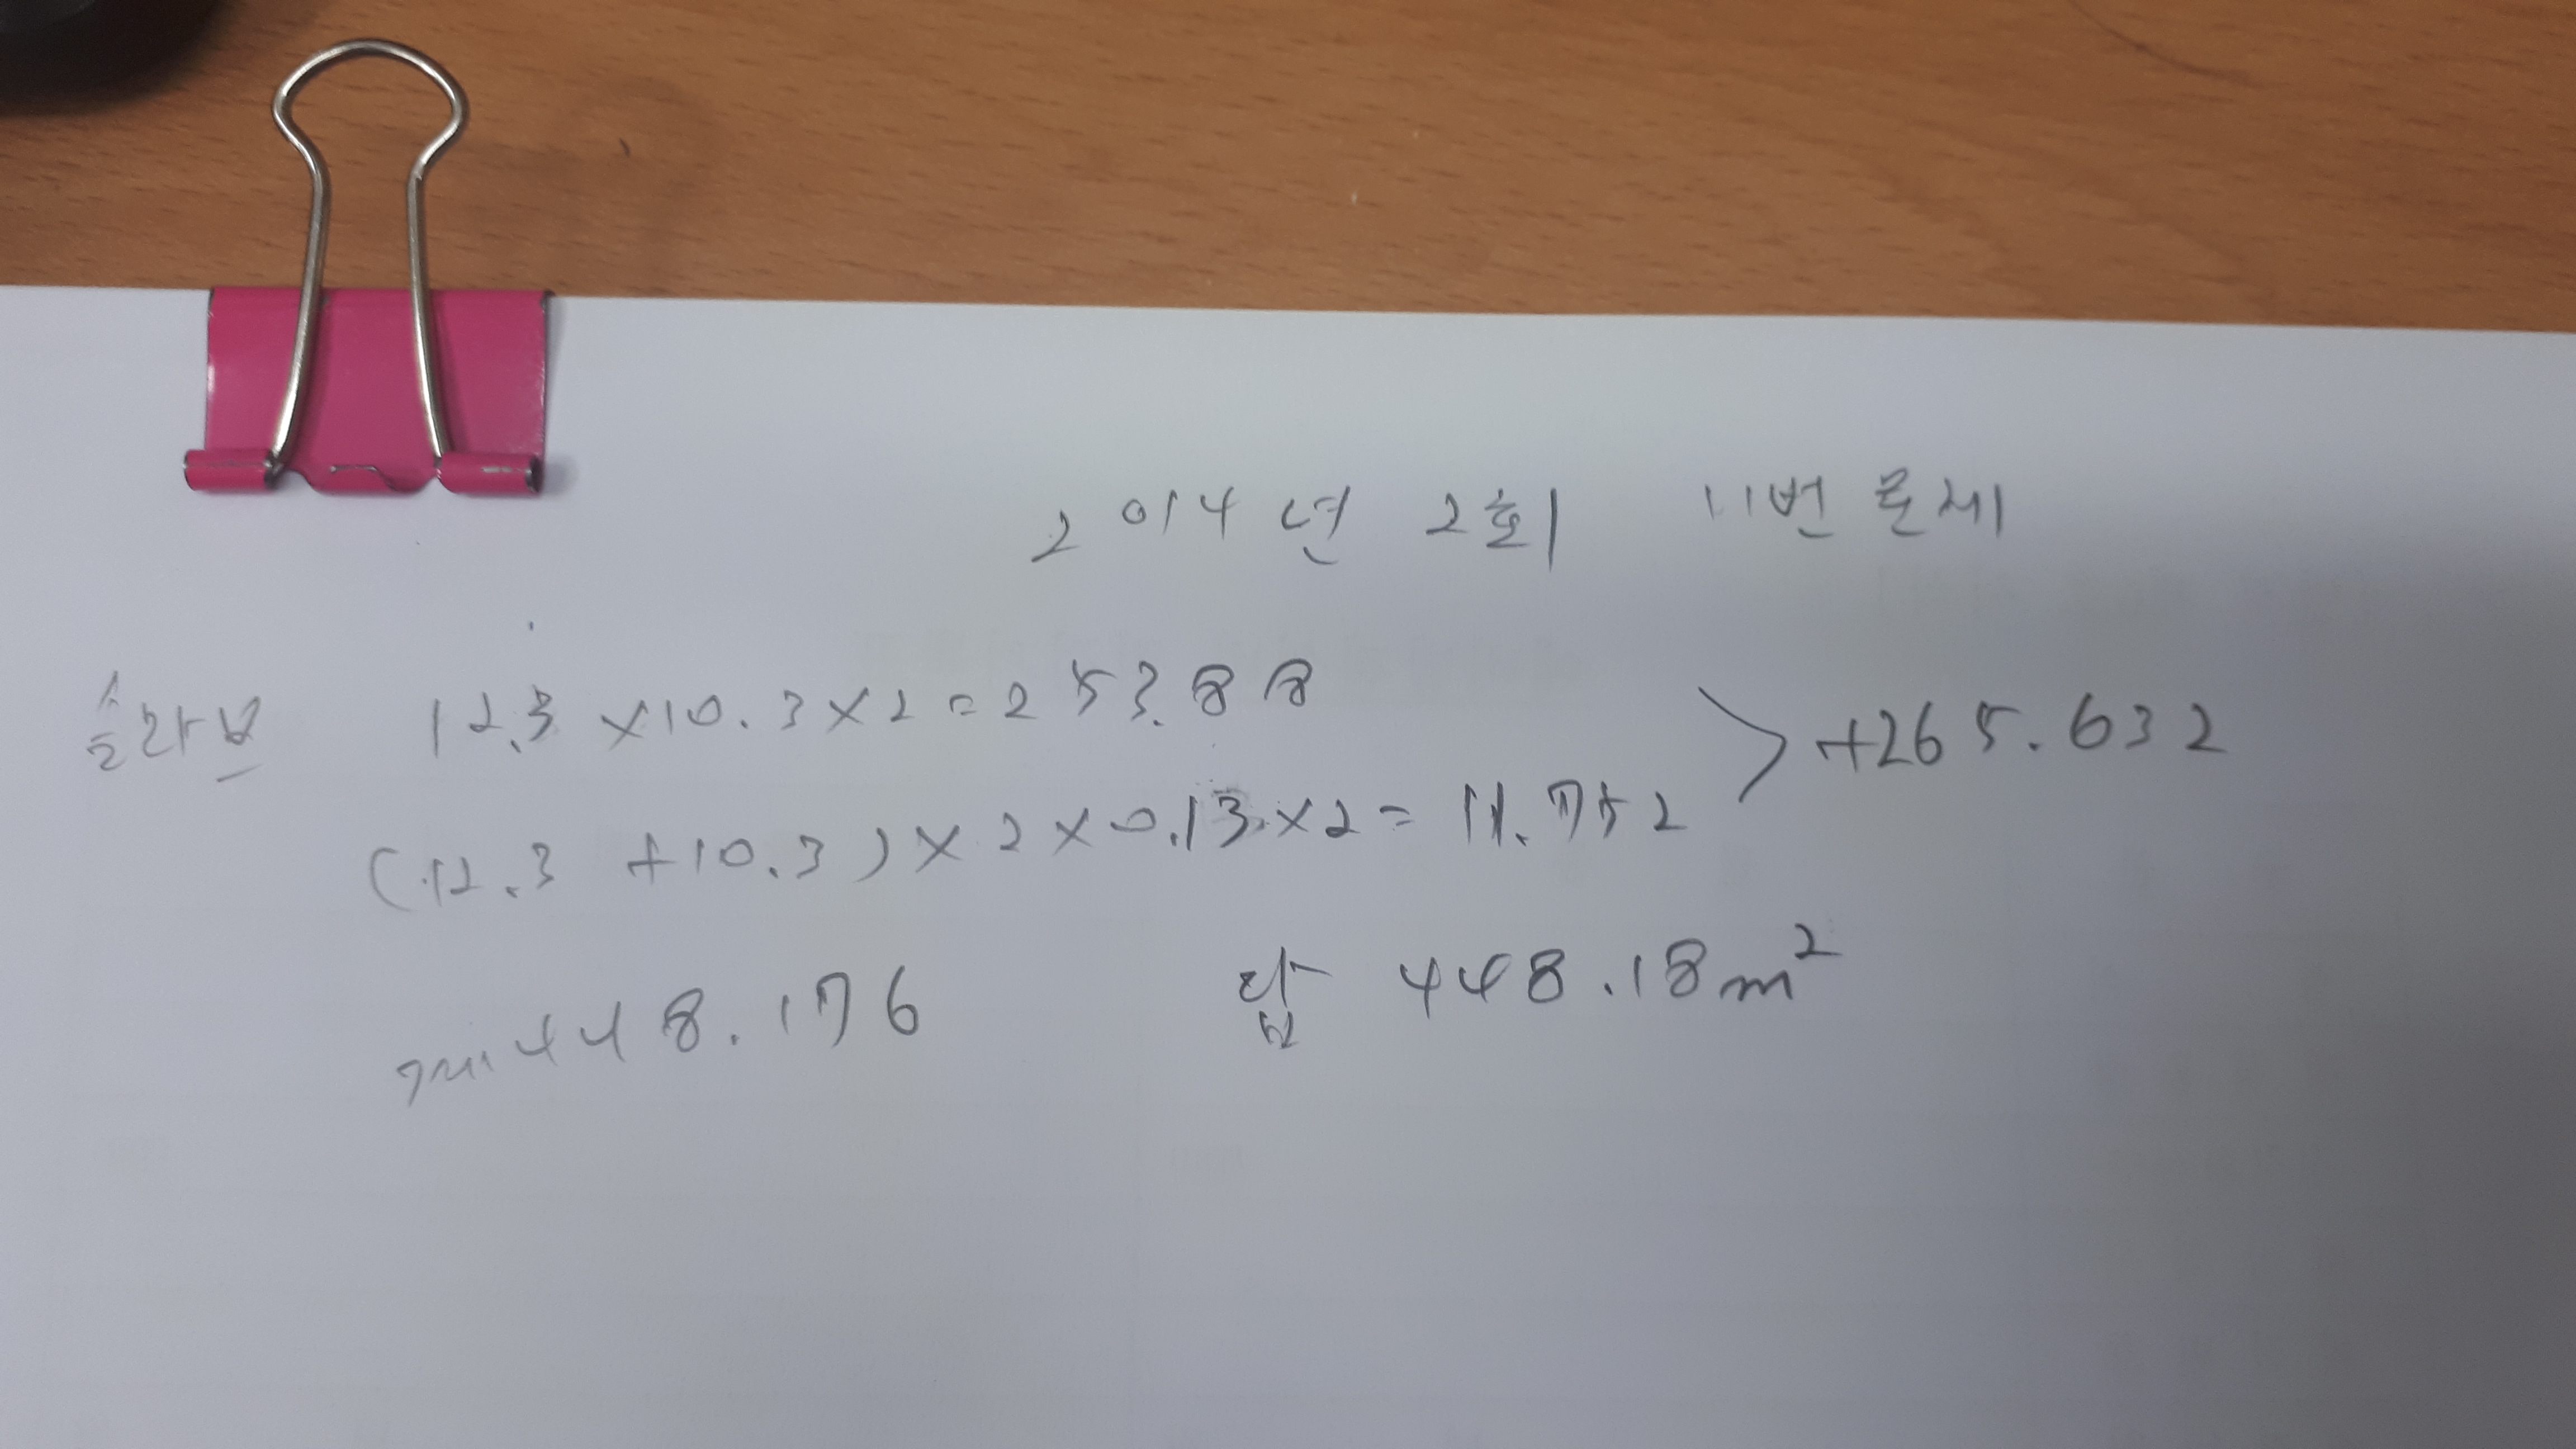 2014년 2회 11번 문제
슬라브 12.3 × 10.3 × 2 = 253.88
(12.3 + 10.3) × 2 × 0.13 × 2 = 11.752
> +265.632
계 448.176 답 448.18m²